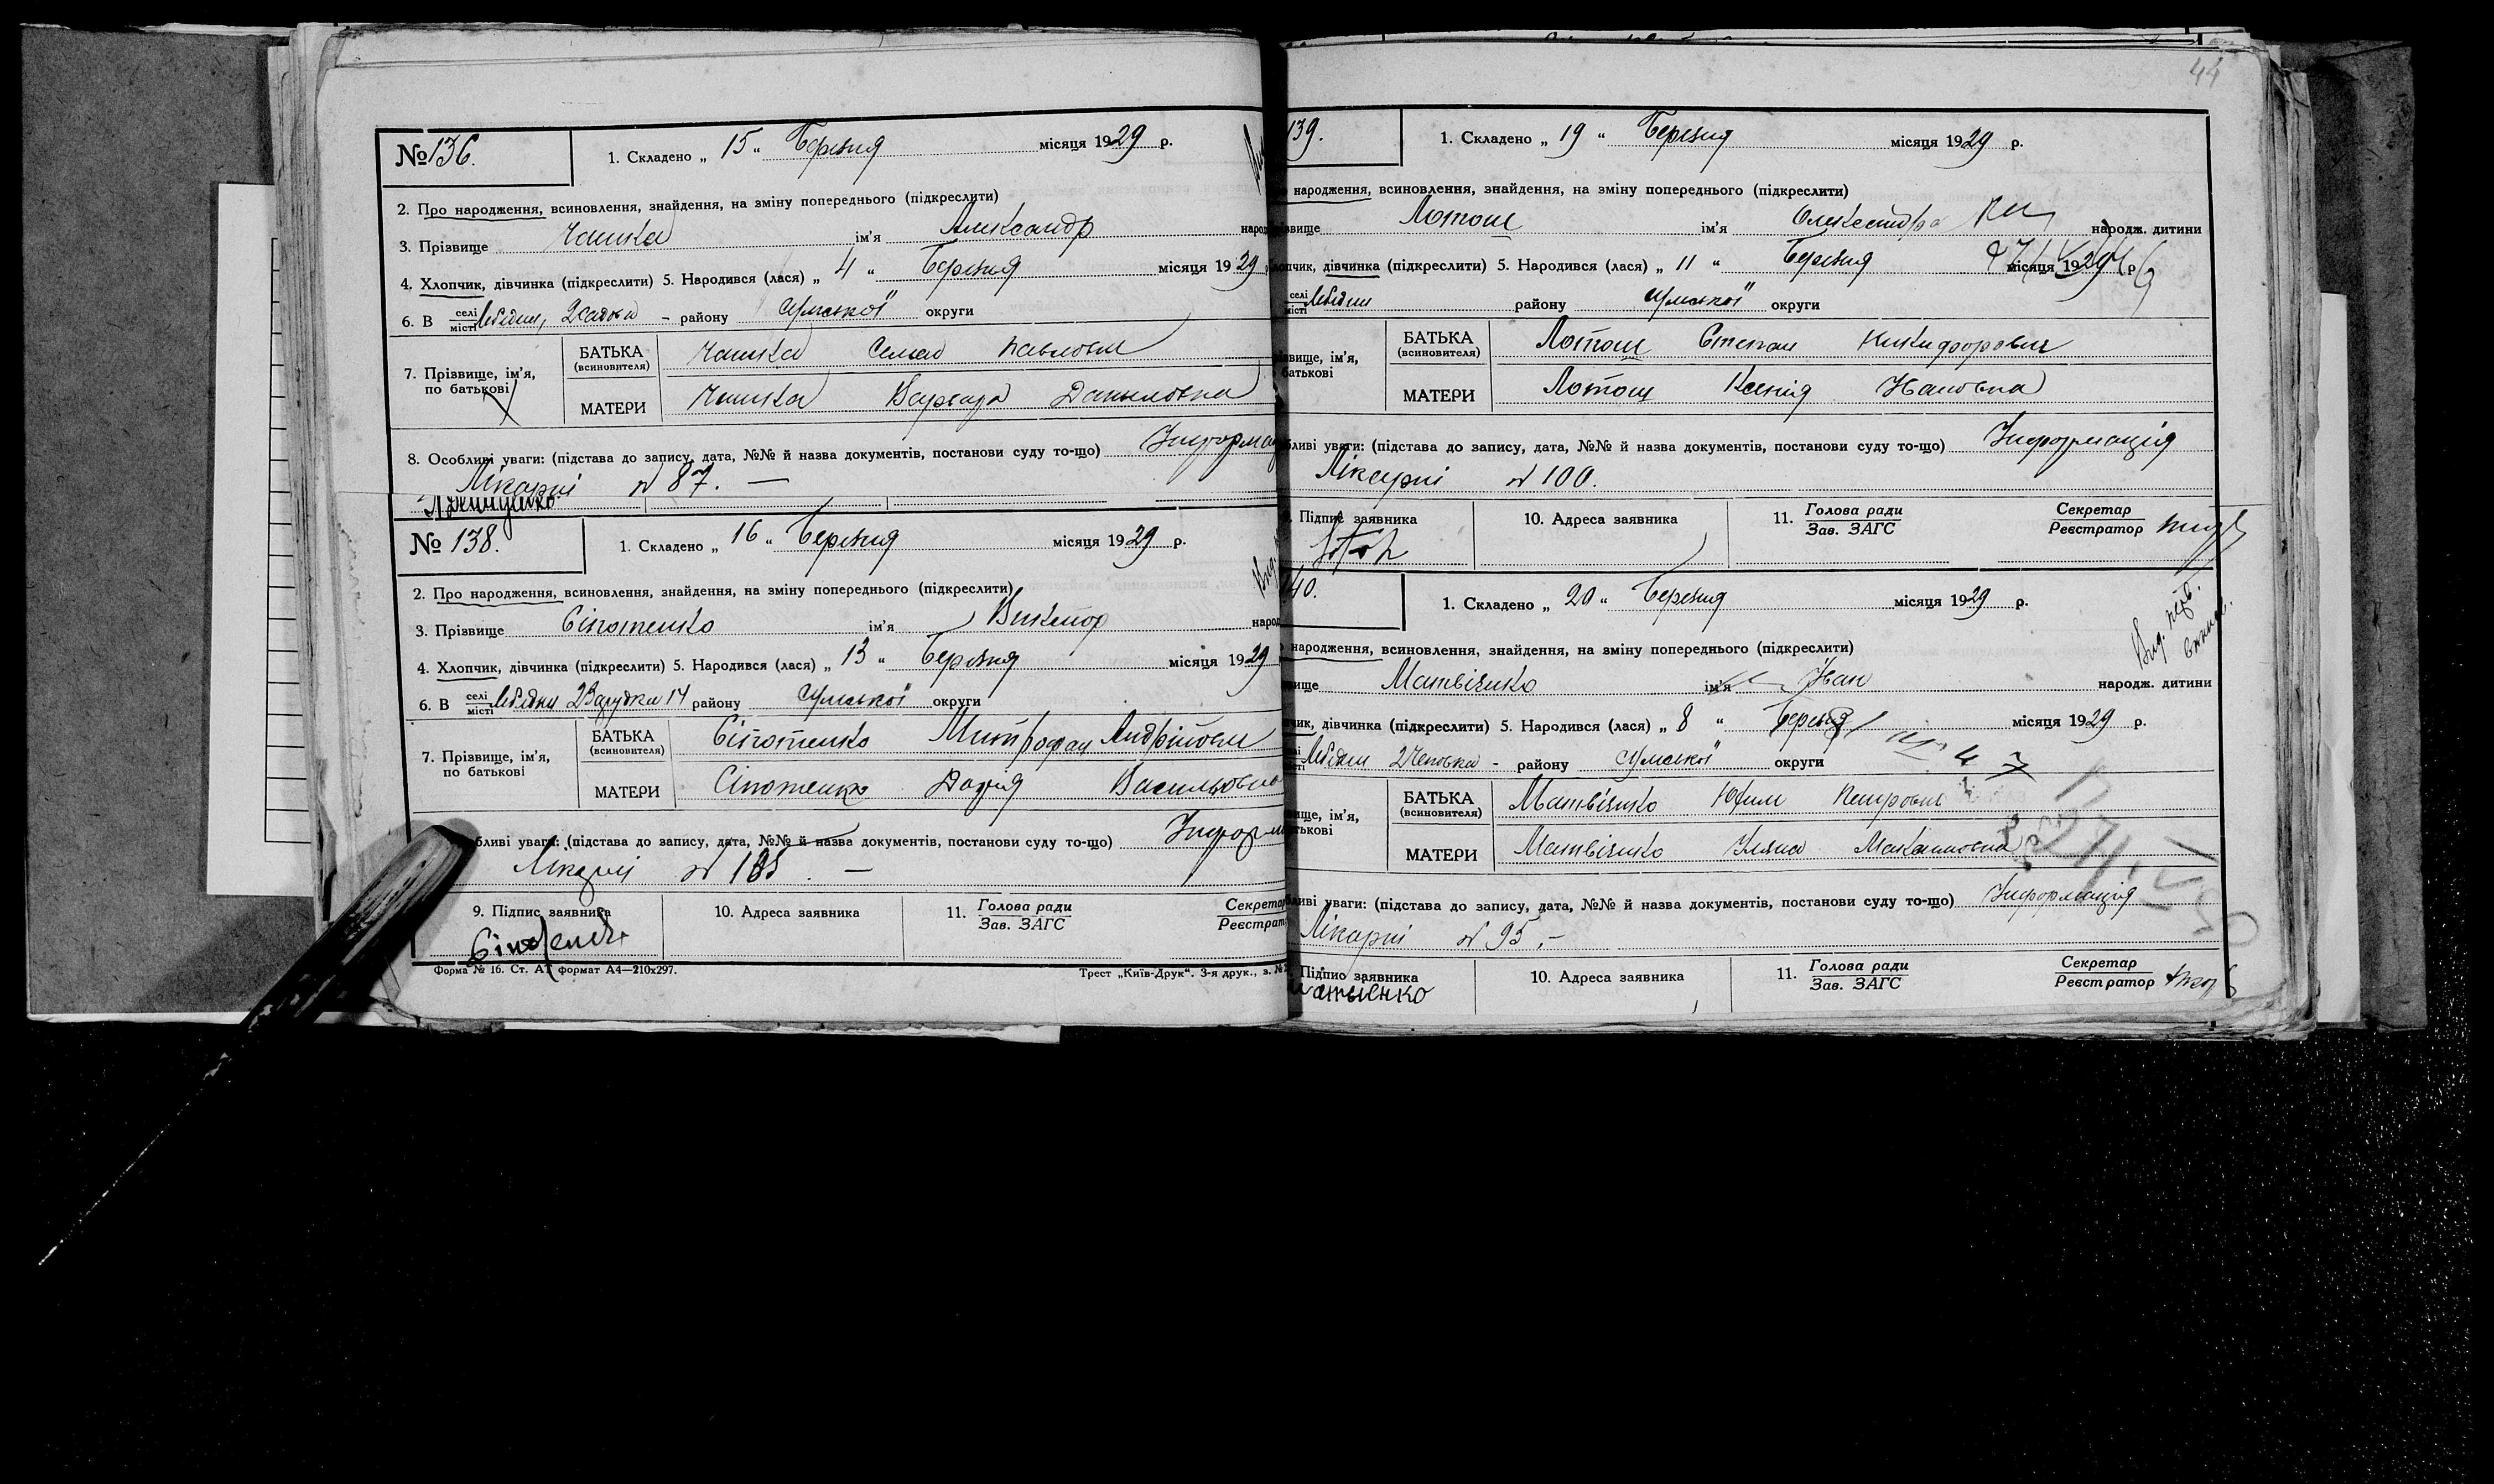 № 136.
1. Складено „ 15 “ Березня місяця 1929 р.
2. Про народження, всиновлення, знайдення, на зміну попереднього (підкреслити)
3. Прізвище Чашка ім’я Александр народ
4. Хлопчик, дівчинка (підкреслити) 5. Народився (лася) „ 4 “ Березня місяця 1929
6. В селі місті Лебедин, району Сумської округи
7. Прізвище, ім’я, по батькові
БАТЬКА (всиновителя) Чашка Семен Павлович
МАТЕРИ Чашка Варвара Даниловна
8. Особливі уваги: (підстава до запису, дата, №№ й назва документів, постанови суду то-що) Информац
Лікарні № 87. —
№ 138.
1. Складено „ 16 “ Березня місяця 1929 р.
2. Про народження, всиновлення, знайдення, на зміну попереднього (підкреслити)
3. Прізвище Сіпотенко ім’я Виктор народ
4. Хлопчик, дівчинка (підкреслити) 5. Народився (лася) „ 13 “ Березня місяця 1929
6. В селі місті Лебедин 14 району Сумської округи
7. Прізвище, ім’я, по батькові
БАТЬКА (всиновителя) Сіпотенко Митрофан Андрійович
МАТЕРИ Сіпотенко Дарія Васильовна
бливі уваги: (підстава до запису, дата, №№ й назва документів, постанови суду то-що) Информ
Лікарні № —
9. Підпис заявника
10. Адреса заявника
11. Голова ради Зав. ЗАГС
Секретар Реєстрат
Форма № 16. Ст. А7 формат А4—210х297.
Трест „Київ-Друк“. 3-я друк., з. №
44
139.
1. Складено „ 19 “ Березня місяця 1929 р.
народження, всиновлення, знайдення, на зміну попереднього (підкреслити)
звище Лотош ім’я Олександра народж. дитини
пчик, дівчинка (підкреслити) 5. Народився (лася) „ 11 “ Березня місяця 1929 р
селі місті Лебедин району Сумської округи
звище, ім’я, батькові
БАТЬКА (всиновителя) Лотош Степан Никифорович
МАТЕРИ Лотош Ксенія Ивановна
бливі уваги: (підстава до запису, дата, №№ й назва документів, постанови суду то-що) Информація
Лікарні № 100.
Підпис заявника
10. Адреса заявника
11. Голова ради Зав. ЗАГС
Секретар Реєстратор
140.
1. Складено „ 20 “ Березня місяця 1929 р.
народження, всиновлення, знайдення, на зміну попереднього (підкреслити)
вище Матвієнко ім’я Іван народж. дитини
чик, дівчинка (підкреслити) 5. Народився (лася) „ 8 “ Березня місяця 1929 р.
Лебедин району Сумської округи
вище, ім’я, тькові
БАТЬКА (всиновителя) Матвієнко Юхим Петрович
МАТЕРИ Матвієнко Уляна Макаровна
ливі уваги: (підстава до запису, дата, №№ й назва документів, постанови суду то-що) Информація
Лікарні № 95, —
Підпис заявника
10. Адреса заявника
11. Голова ради Зав. ЗАГС
Секретар Реєстратор